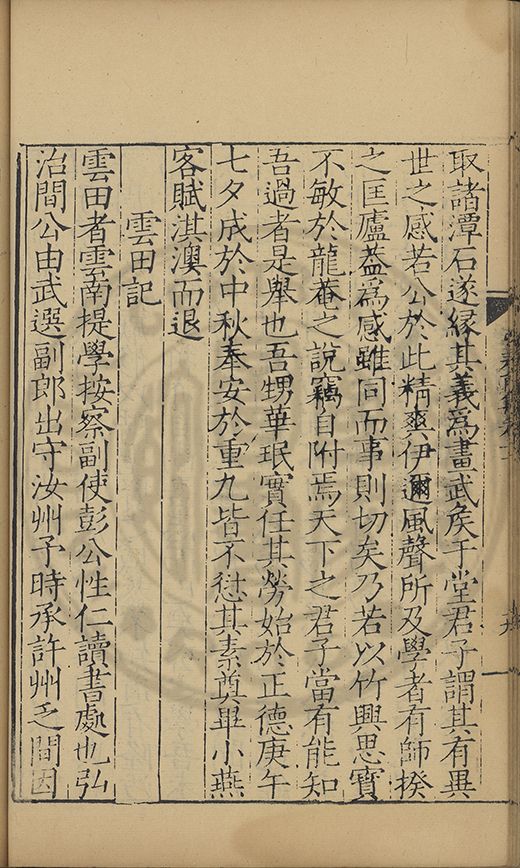 取諸潭石逐縁其義為畫武矦于堂君子謂其有異
世之感若公於此精爽伊邇風聲所及學者有師揆
之匡廬蓋為感雖同而事則切矣乃若以竹興思寳
不敏於龍菴之說竊自附焉天下之君子當有能知
吾過者是舉也吾甥華珉實任其勞始於正德庚午
七夕成於中秋奉安於重九皆不愆其素奠畢小燕
客賦淇澳而退
雲田記
雲田者雲南提學按察副使彭公性仁讀書處也弘
治間公由武選副郎出守汝州予時承許州乏間因